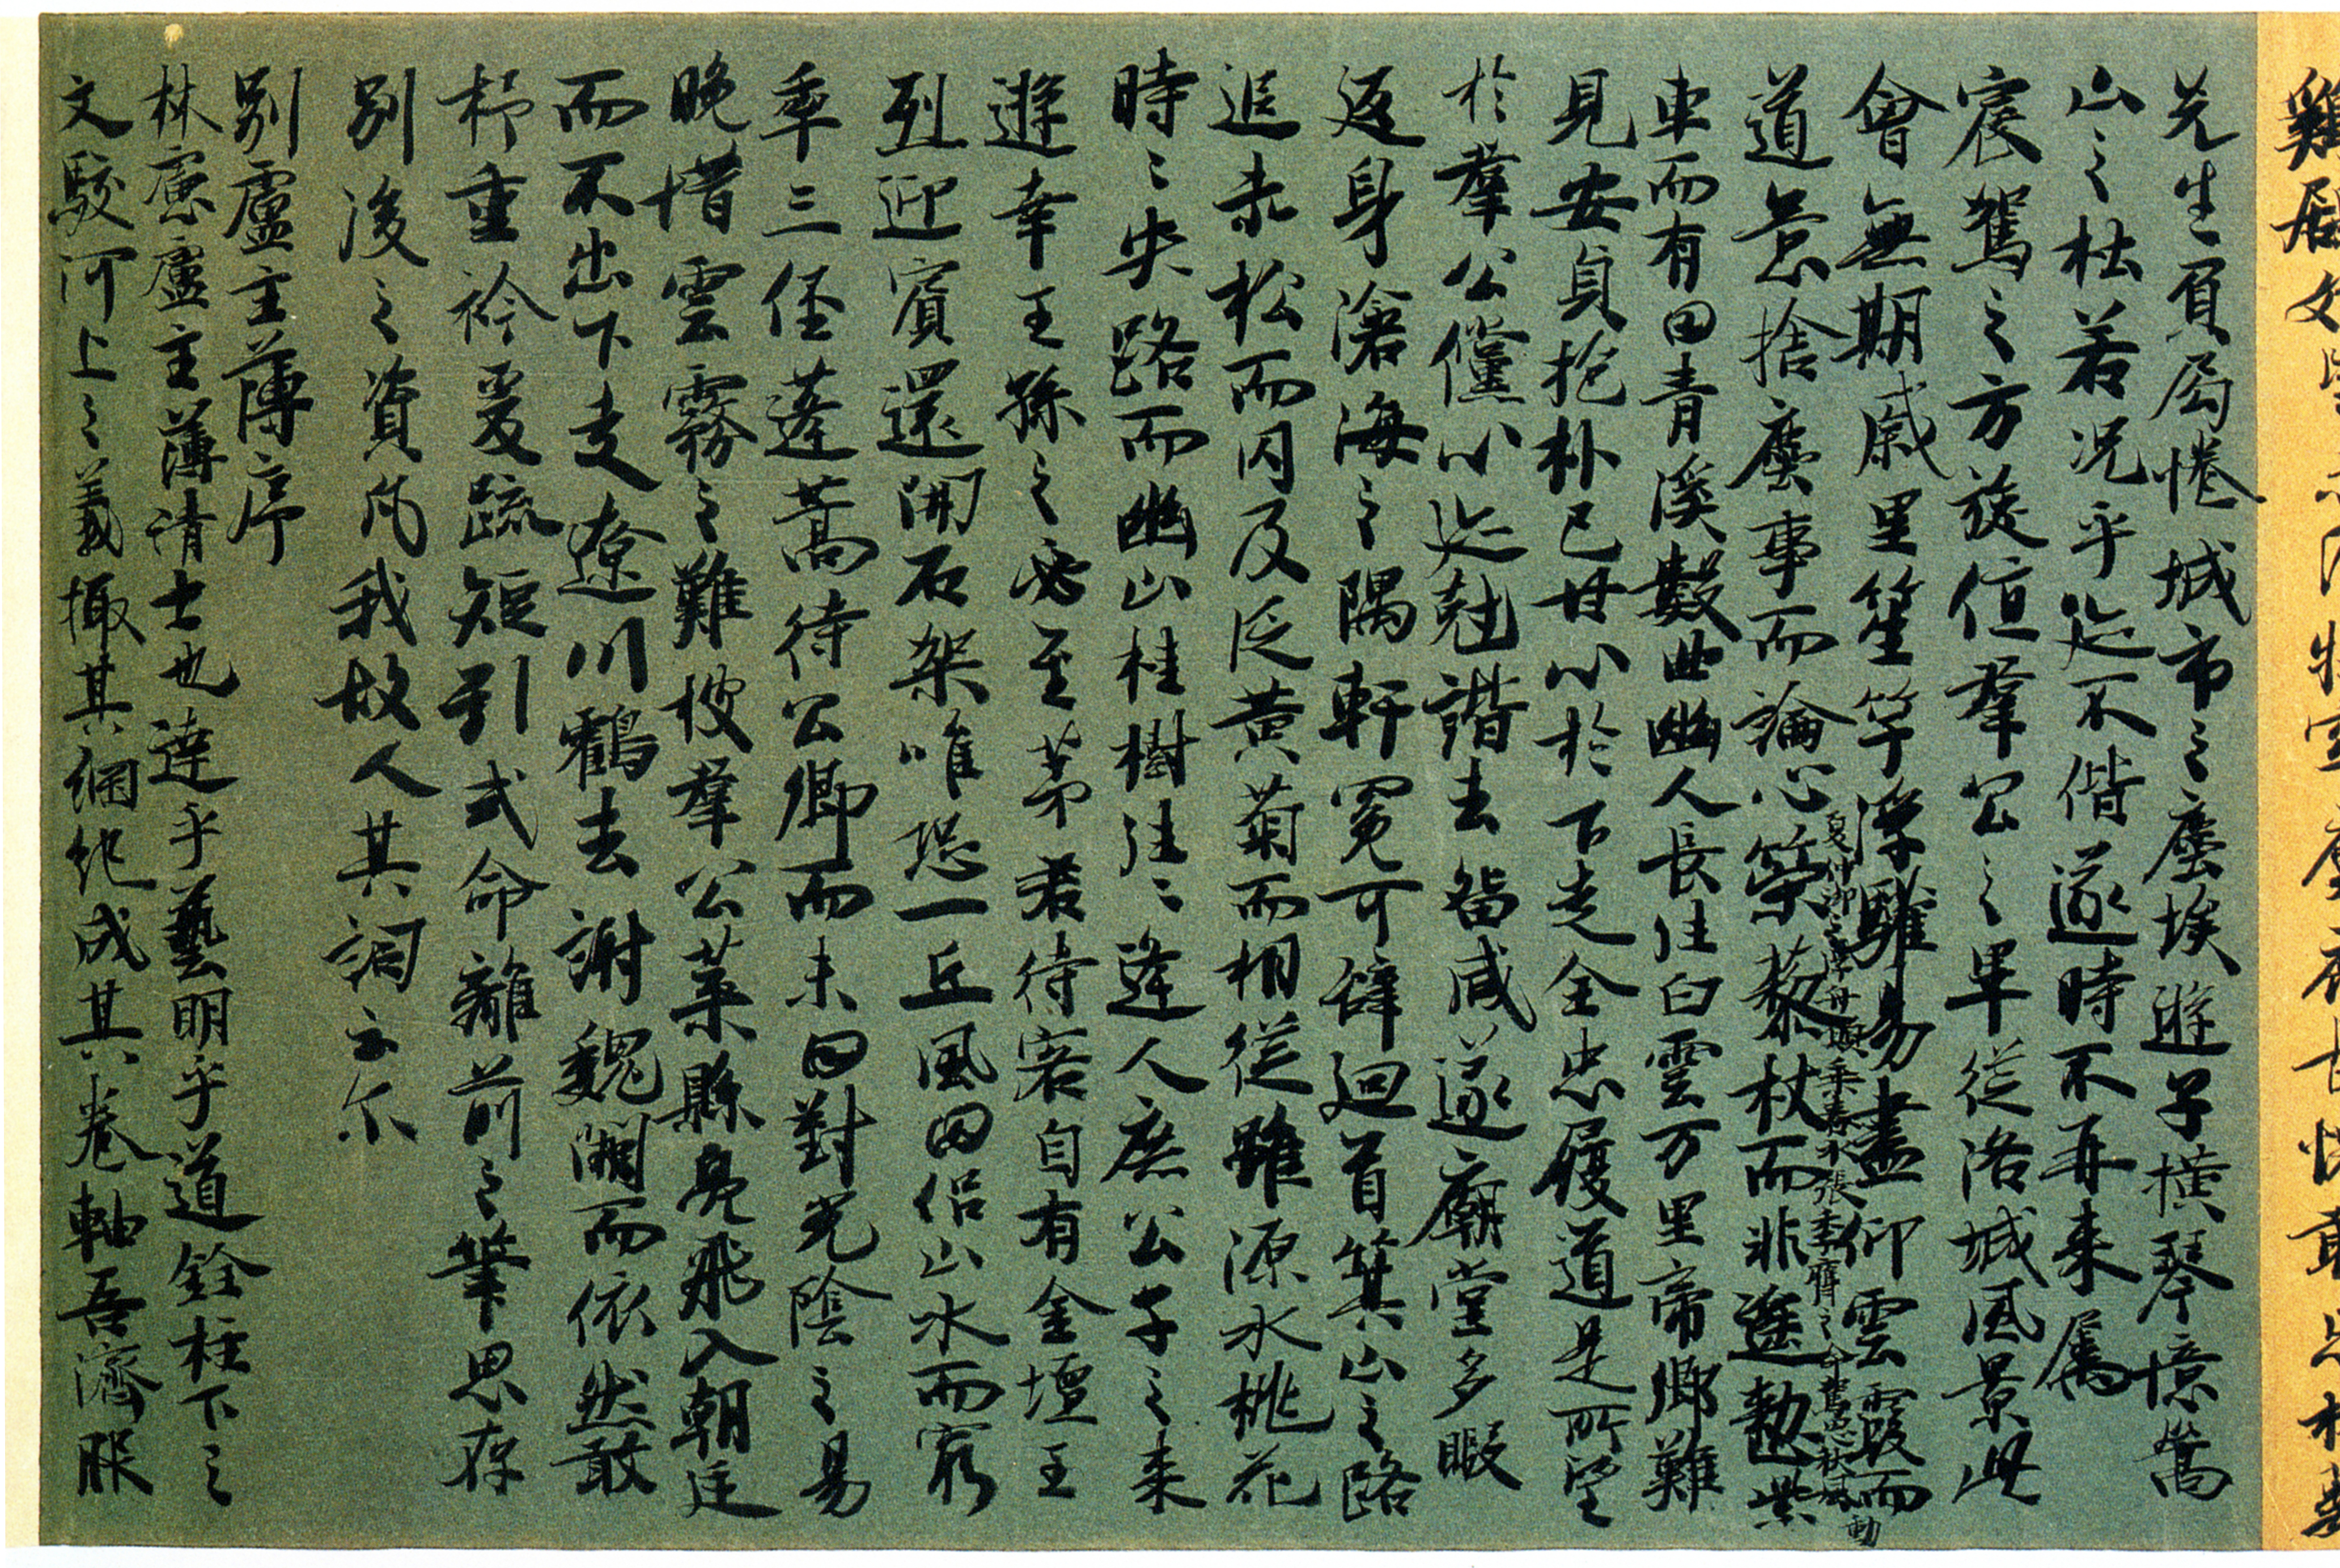 先生負局倦城市之塵埃遊子橫琴憶嵩
山之杜若況乎迹不偕遂時不再来属
宸駕之方旋值羣公之畢従洛城風景此
會無期戚里笙竽浮驩易盡仰雲霞而
道意捨塵事而論心策藜杖而非遥勅柴
夏仲御之浮舟願乗春水張季膺之命駕思秋風動
車而有日青溪數曲幽人長往白雲万里帝郷難
見安貞抱朴已甘心於下走全忠履道是所望
於羣公儻心迹尅諧去留咸遂廟堂多暇
返身滄海之隅軒冕可辞迴首箕山之路
追赤松而内及泛黄菊而相従雖源水桃花
時〻失路而幽山桂樹往〻逢人庶公子之来
遊幸王孫之必至茅君待客自有金壇王
烈迎賓還開石架唯恐一丘風月侶山水而窮
年三徑蓬蒿待公卿而未日對光陰之易
晩惜雲霧之難披羣公葉縣鳧飛入朝廷
而不出下走遼川鶴去謝魏闕而依然敢
杼重衿爰疏短引式命離前之筆思存
別後之資凡我故人其詞云尓
別盧主薄序
林慮盧主薄清士也達乎藝明乎道銓柱下之
文駮河上之義撮其綱紀成其卷軸吾濟服